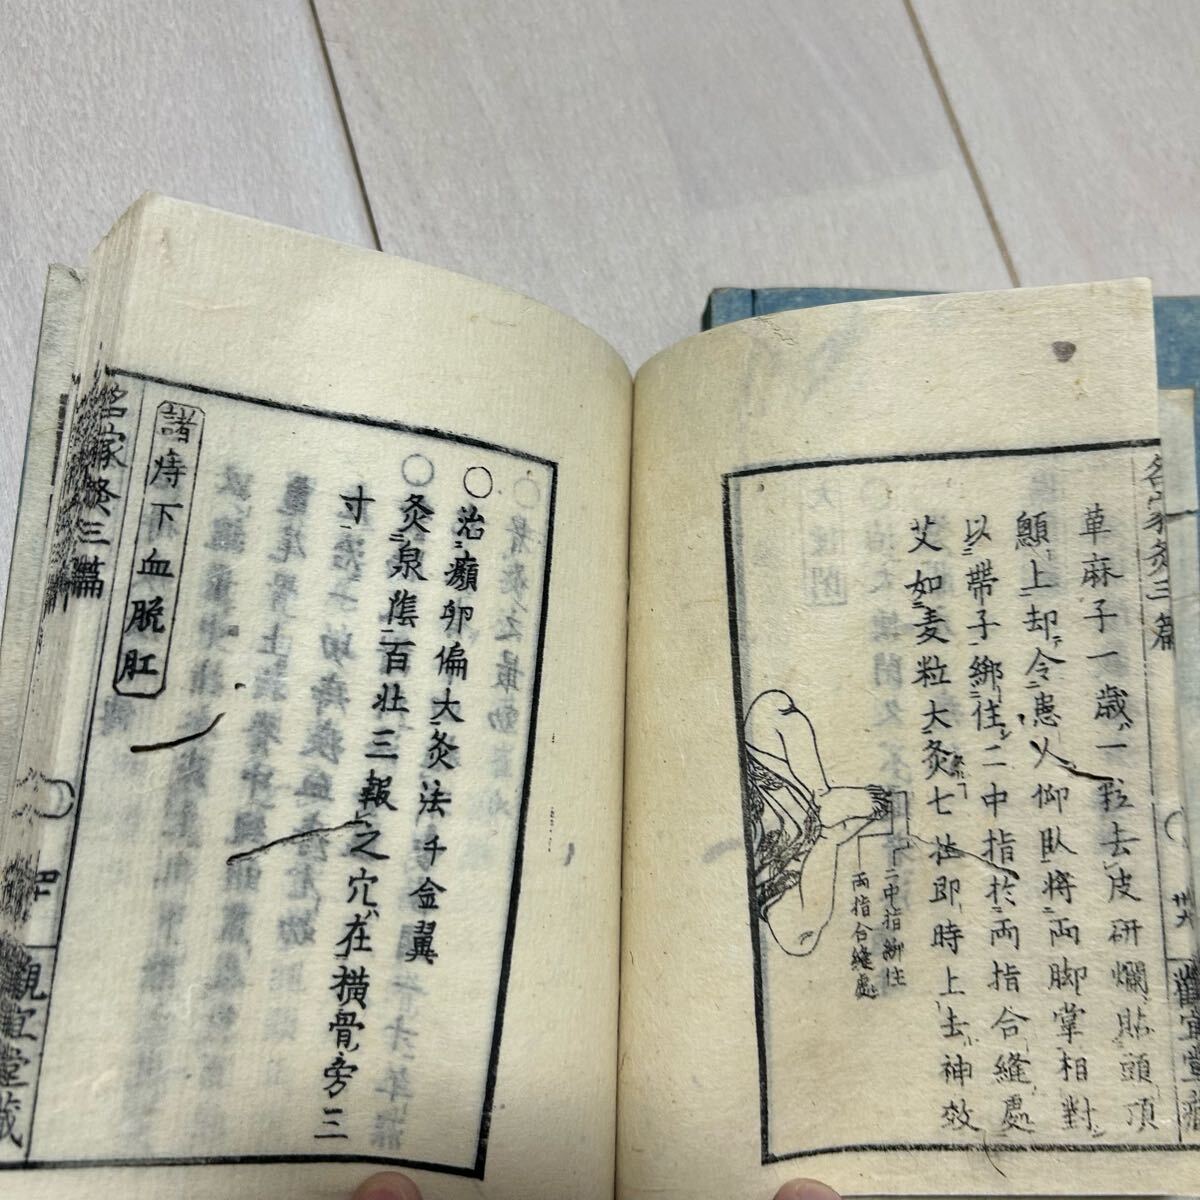 萆麻子一歳一粒去皮研爛貼頭頂
顖上却令患人仰臥將両脚掌相對
以帶子綁住二中指於両指合縫處
艾如麦粒大灸七壮即時上去神效
二中指綁住
両指合縫處
卅六
○治癲卵偏大灸法千金翼
灸泉陰百壮三報之穴在横骨旁三
寸
諸痔下血脱肛
名家灸三篇
四十
觀宜堂蔵